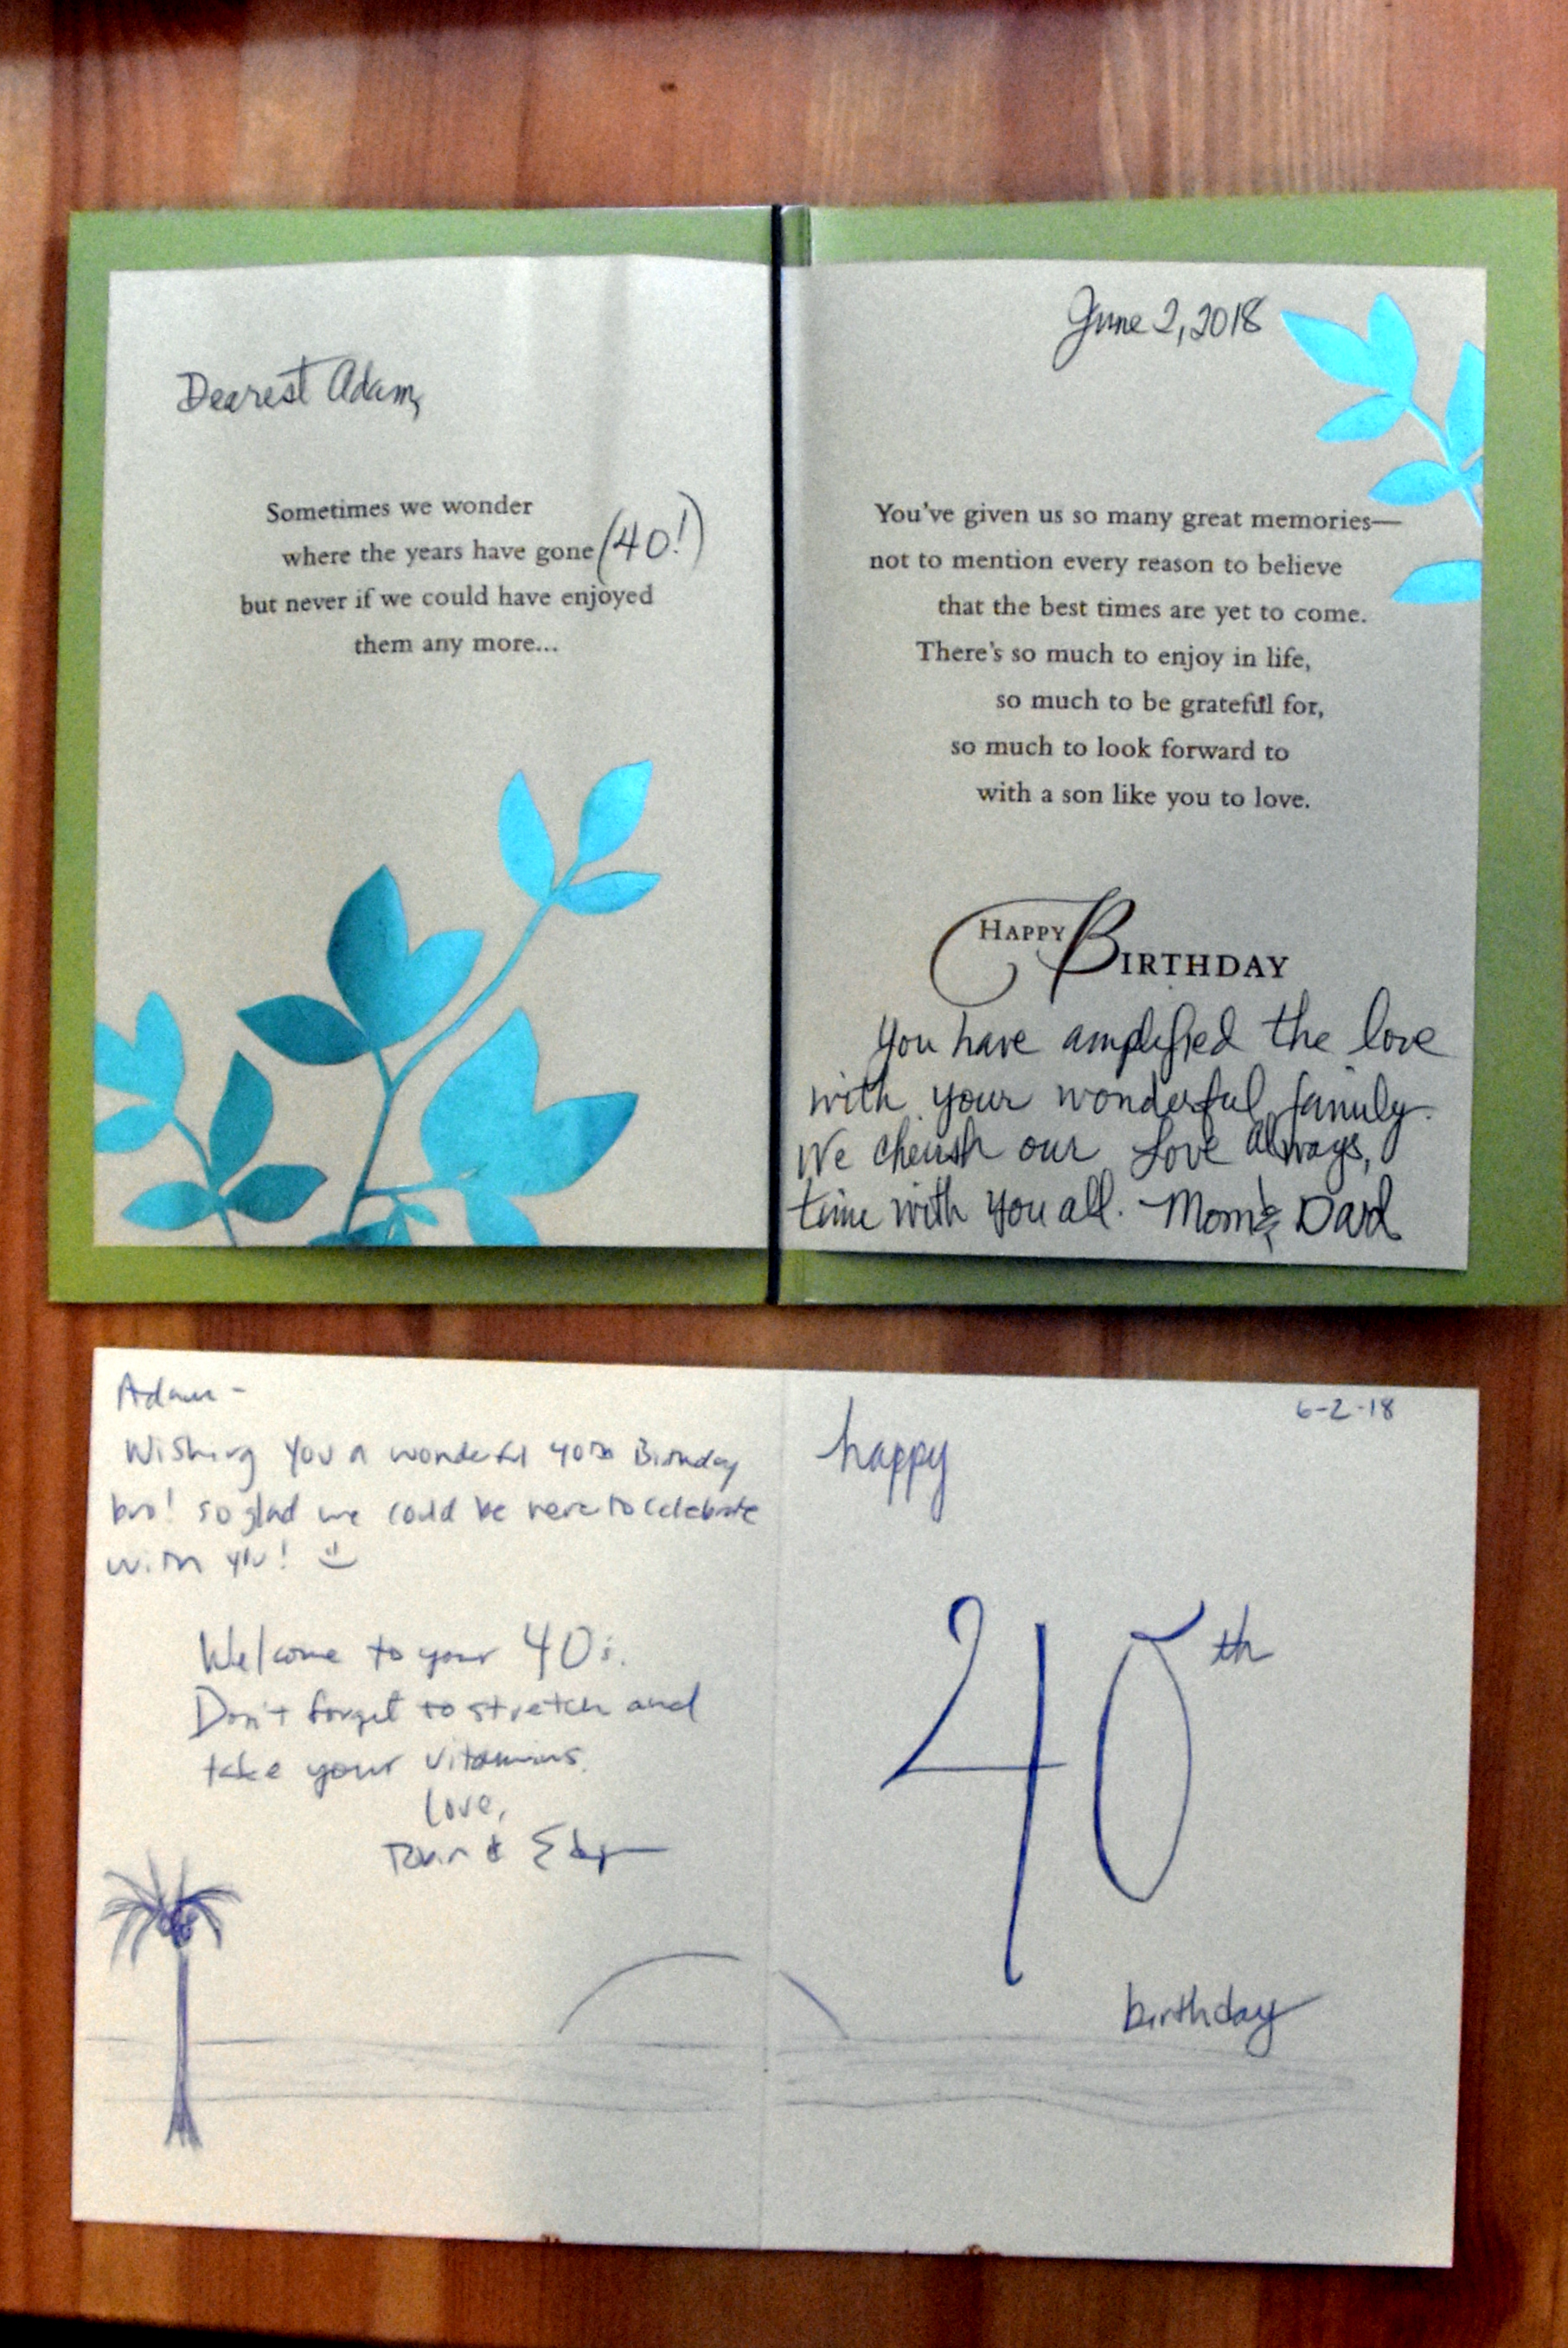 Dearest Adam,
Sometimes we wonder
where the years have gone (40!)
but never if we could have enjoyed
them any more...
June 2, 2018
You've given us so many great memories—
not to mention every reason to believe
that the best times are yet to come.
There's so much to enjoy in life,
so much to be grateful for,
so much to look forward to
with a son like you to love.
HAPPY BIRTHDAY
You have amplified the love
with your wonderful family.
We cherish our Love Always,
time with you all. - Mom & Dad
Adam -
Wishing you a wonderful 40th Birthday
bro! so glad we could be here to celebrate
with you!
Welcome to your 40s.
Don't forget to stretch and
take your vitamins.
Love,
&
6-2-18
happy
40th
birthday